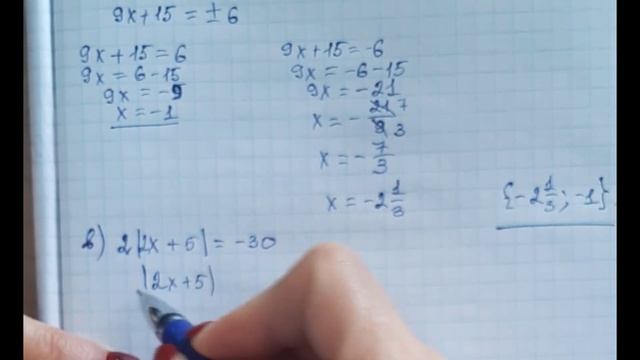 9x+15 = ± 6
9x+15 = 6
9x = 6-15
9x = -9
x = -1
9x+15 = -6
9x = -6-15
9x = -21
x = - 21 7 / 9 3
x = - 7/3
x = -2 1/3
{-2 1/3; -1}
в) 2|2x + 5| = -30
|2x+5|